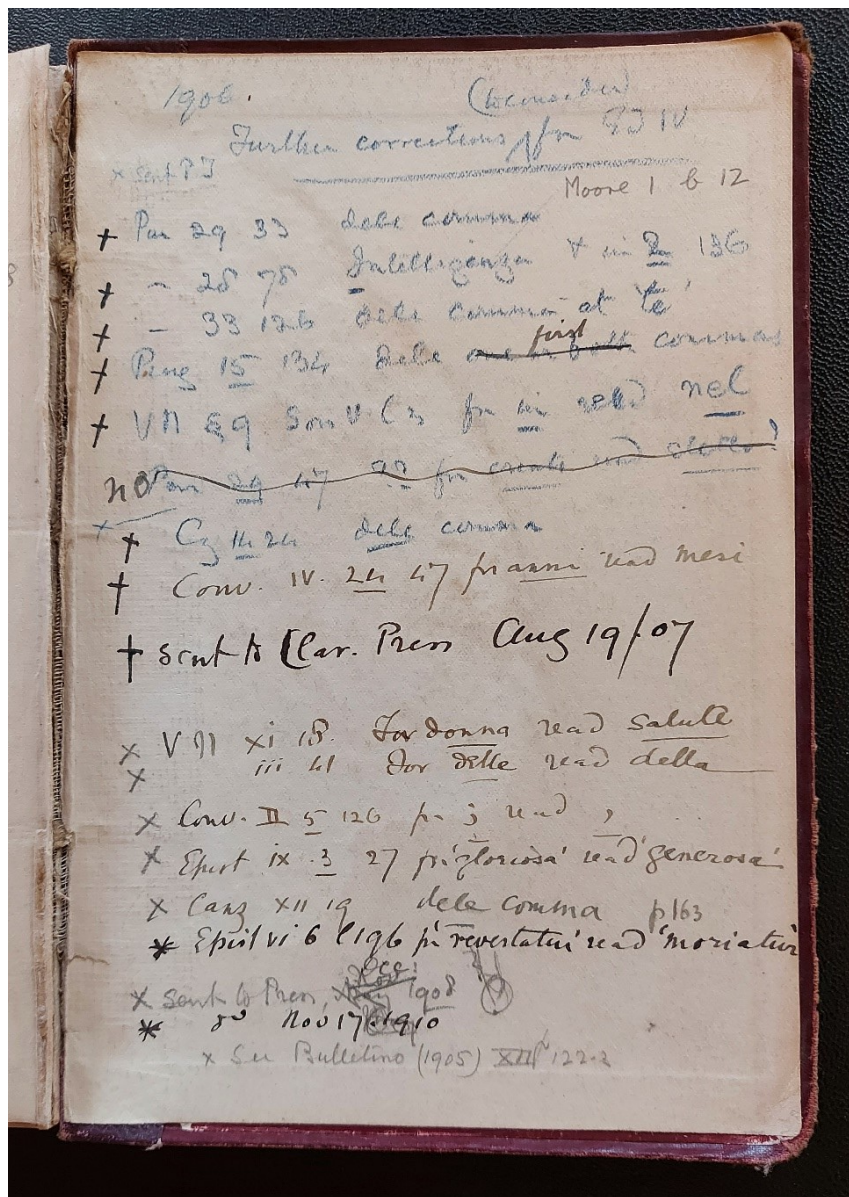 1906. (to consider)
Further corrections for Ed IV
× sent P J
Moore 1 b 12
† Par 29 33 dele comma
† — 28 78 Intelligenza × in 2 136
† — 33 126 dele comma at 'te'
† Purg 15 134 dele one or both first commas
† VN § 9 Son V l 3 for in read nel
no Par 29 47 for read
×
† Cz 14 24 dele comma
† Conv. IV. 24 47 for anni read mesi
† sent to Clar. Press Aug 19/07
× VN xi 18. For donna read salute
× iii 41 For delle read della
× Conv. II 5 126 for ; read ,
× Epist ix . 3 27 for 'gloriosa' read 'generosa'
× Canz XII 19 dele comma p 163
* Epist vi 6 l 196 for revertatur read 'moriatur'
× sent to Press, Dec: 1908
* do Nov 17. 1910
× See Bulletino (1905) XII p 122-3